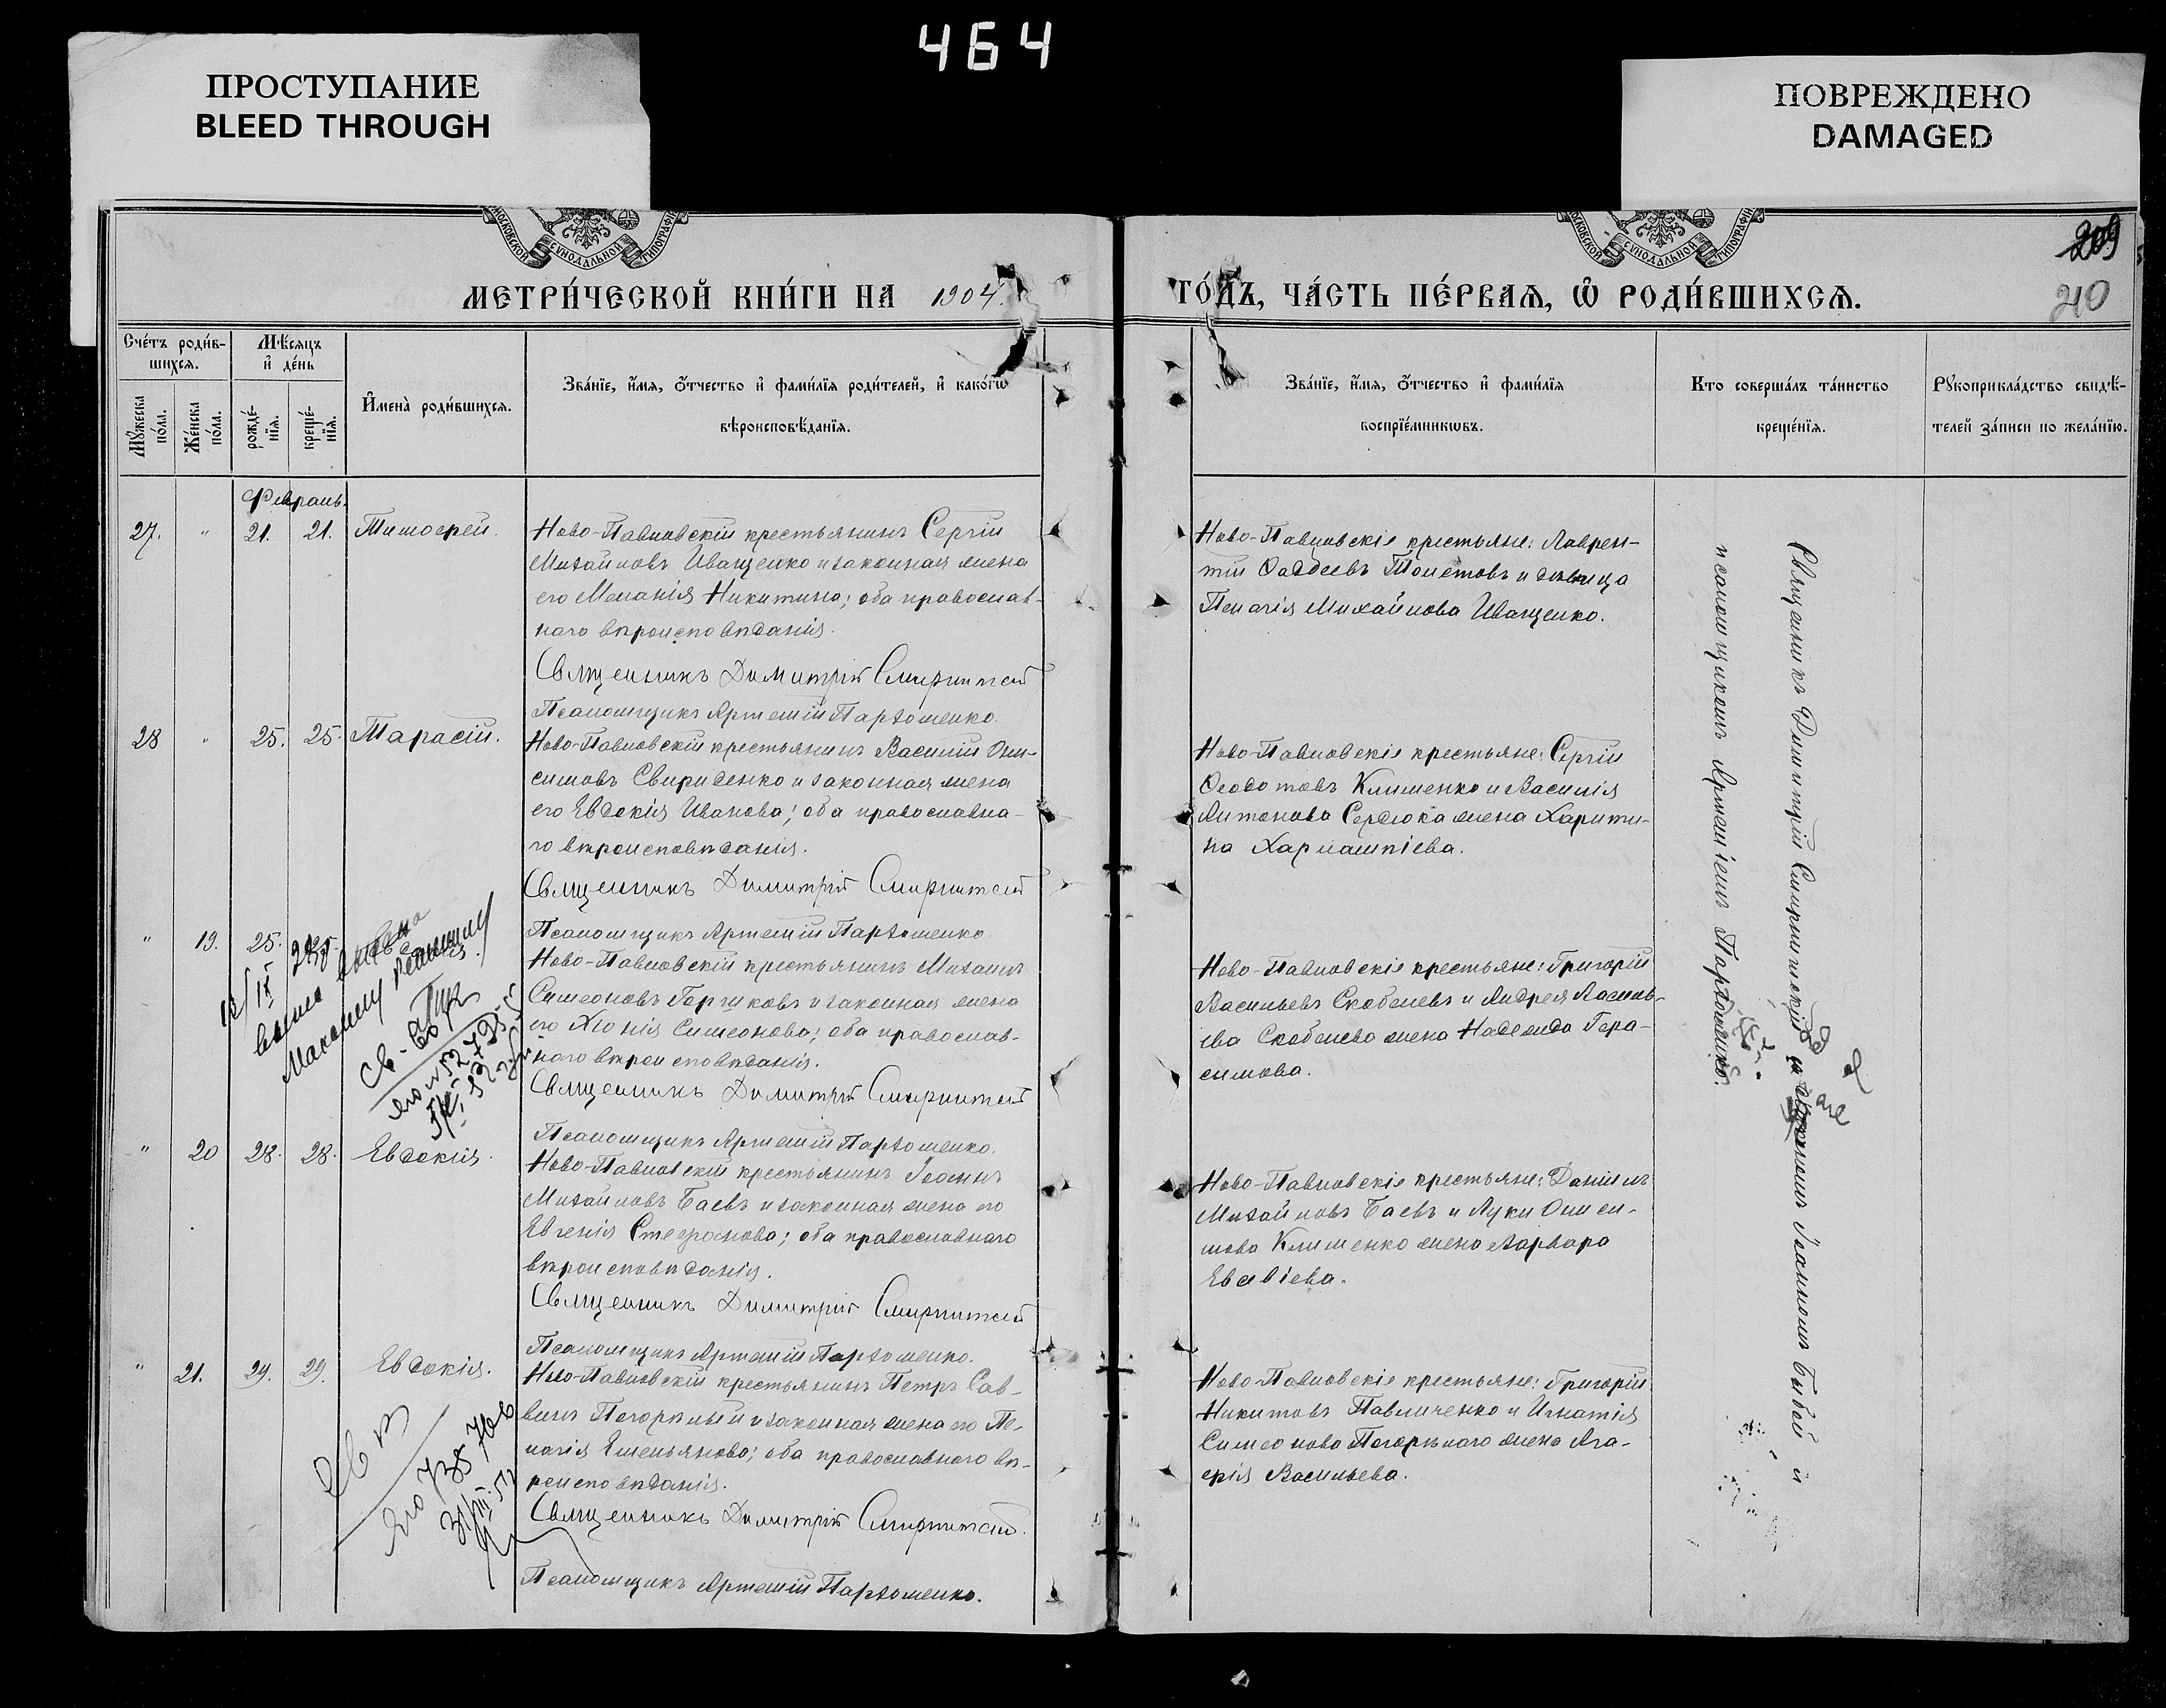 464
ПРОСТУПАНИЕ
BLEED THROUGH
ПОВРЕЖДЕНО
DAMAGED
МОСКОВСКОЙ СѴНОДАЛЬНОЙ ТИПОГРАФІИ
МОСКОВСКОЙ СѴНОДАЛЬНОЙ ТИПОГРАФІИ
209
210
МЕТРИ́ЧЕСКОЙ КНИ́ГИ НА 1904.
ГО́ДЪ, ЧА́СТЬ ПЕ́РВАѦ, Ѡ РОДИ́ВШИХСѦ.
Сче́тъ роди́в-
шихсѧ.
Мѣ́сѧцъ
и҆ де́нь
Мꙋ́жеска по́ла.
Же́нска по́ла.
рожде́-
нїѧ.
креще́-
нїѧ.
И҆мена̀ роди́вшихсѧ.
Зва́нїе, и҆́мѧ, ѻ҆́тчество и҆ фами́лїѧ роди́телей, и҆ како́гѡ
вѣроисповѣ́данїѧ.
Зва́нїе, и҆́мѧ, ѻ҆́тчество и҆ фами́лїѧ
воспрїе́мникѡвъ.
Кто соверша́лъ та́инство
креще́нїѧ.
Рꙋкоприкла́дство свидѣ́-
телей за́писи по жела́нїю.
Февраль.
27. " 21. 21. Тимофей.
Ново-Павловскій крестьянинъ Сергій
Михайловъ Иващенко и законная жена
его Меланія Никитина; оба православ-
наго вѣроисповѣданія.
Священникъ Димитрій
Псаломщикъ Артемій Пархоменко.
Ново-Павловскіе крестьяне: Лаврен-
тій Фаддеевъ Толстовъ и дѣвица
Пелагія Михайлова Иващенко.
28 " 25. 25. Тарасій.
Ново-Павловскій крестьянинъ Василій Они-
симовъ Свириденко и законная жена
его Евдокія Иванова; оба православна-
го вѣроисповѣданія.
Священникъ Димитрій
Псаломщикъ Артемій Пархоменко.
Ново-Павловскіе крестьяне: Сергій
Ѳеодотовъ Клименко и Василія
Антонова Сердюка жена Харити-
на
" 19. 25. 25.
Ново-Павловскій крестьянинъ Михаилъ
Симеоновъ Горшковъ и законная жена
его Хіонія Симеонова; оба православ-
наго вѣроисповѣданія.
Священникъ Димитрій
Псаломщикъ Артемій Пархоменко.
Ново-Павловскіе крестьяне: Григорій
Васильевъ Скобелевъ и Андрея Василь-
ева Скобелева жена Надежда Гера-
симова.
" 20 28. 28. Евдокія.
Ново-Павловскій крестьянинъ Іоаннъ
Михайловъ Баевъ и законная жена его
Евгенія Стефанова; оба православнаго
вѣроисповѣданія.
Священникъ Димитрій
Псаломщикъ Артемій Пархоменко.
Ново-Павловскіе крестьяне: Даніилъ
Михайловъ Баевъ и Луки Ониси-
мова Клименко жена Варвара
" 21. 29. 29. Евдокія.
Ново-Павловскій крестьянинъ Петръ Сав-
винъ Погорѣлый и законная жена его Пе-
лагія Емельянова; оба православнаго вѣ-
роисповѣданія.
Священникъ Димитрій
Псаломщикъ Артемій Пархоменко.
Ново-Павловскіе крестьяне: Григорій
Никитовъ Павличенко и Игнатія
Симеонова Погорѣлаго жена Ага-
фія Васильева.
Священникъ Димитрій
и псаломщикомъ Артеміемъ Пархоменко.